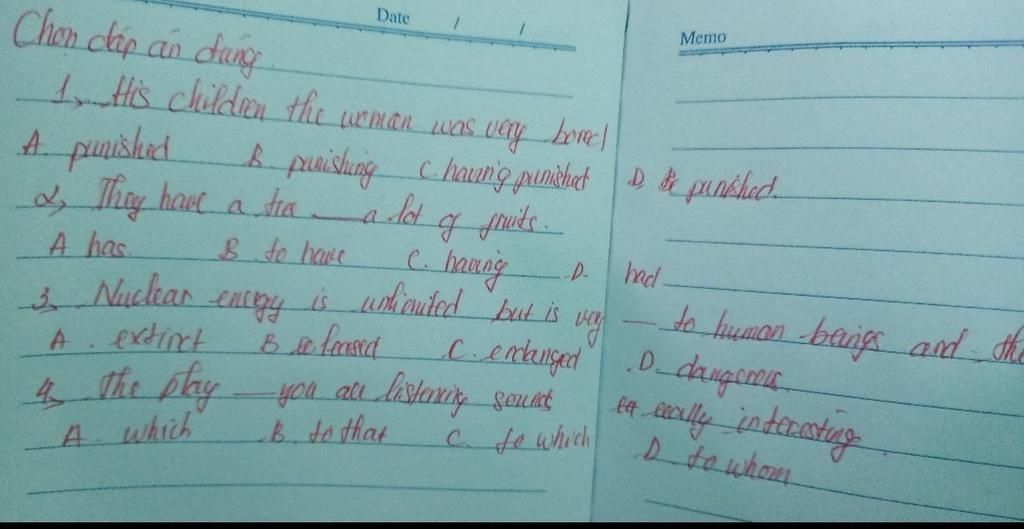 Date / /
Memo
Chọn đáp án đúng
1, His children the woman was very bored
A punished B punishing C. having punished D. punished.
2, They have a tree ___ a lot of fruits.
A has B to have C. having D. had
3, Nuclear energy is unlimited but is very ___ to human beings and the
A. extinct B C. endanged D. dangerous
4, The play ___ you are listening sounds really interesting
A. which B to that C. to which D to whom